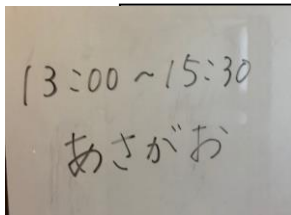 13:00~15:30
あさがお